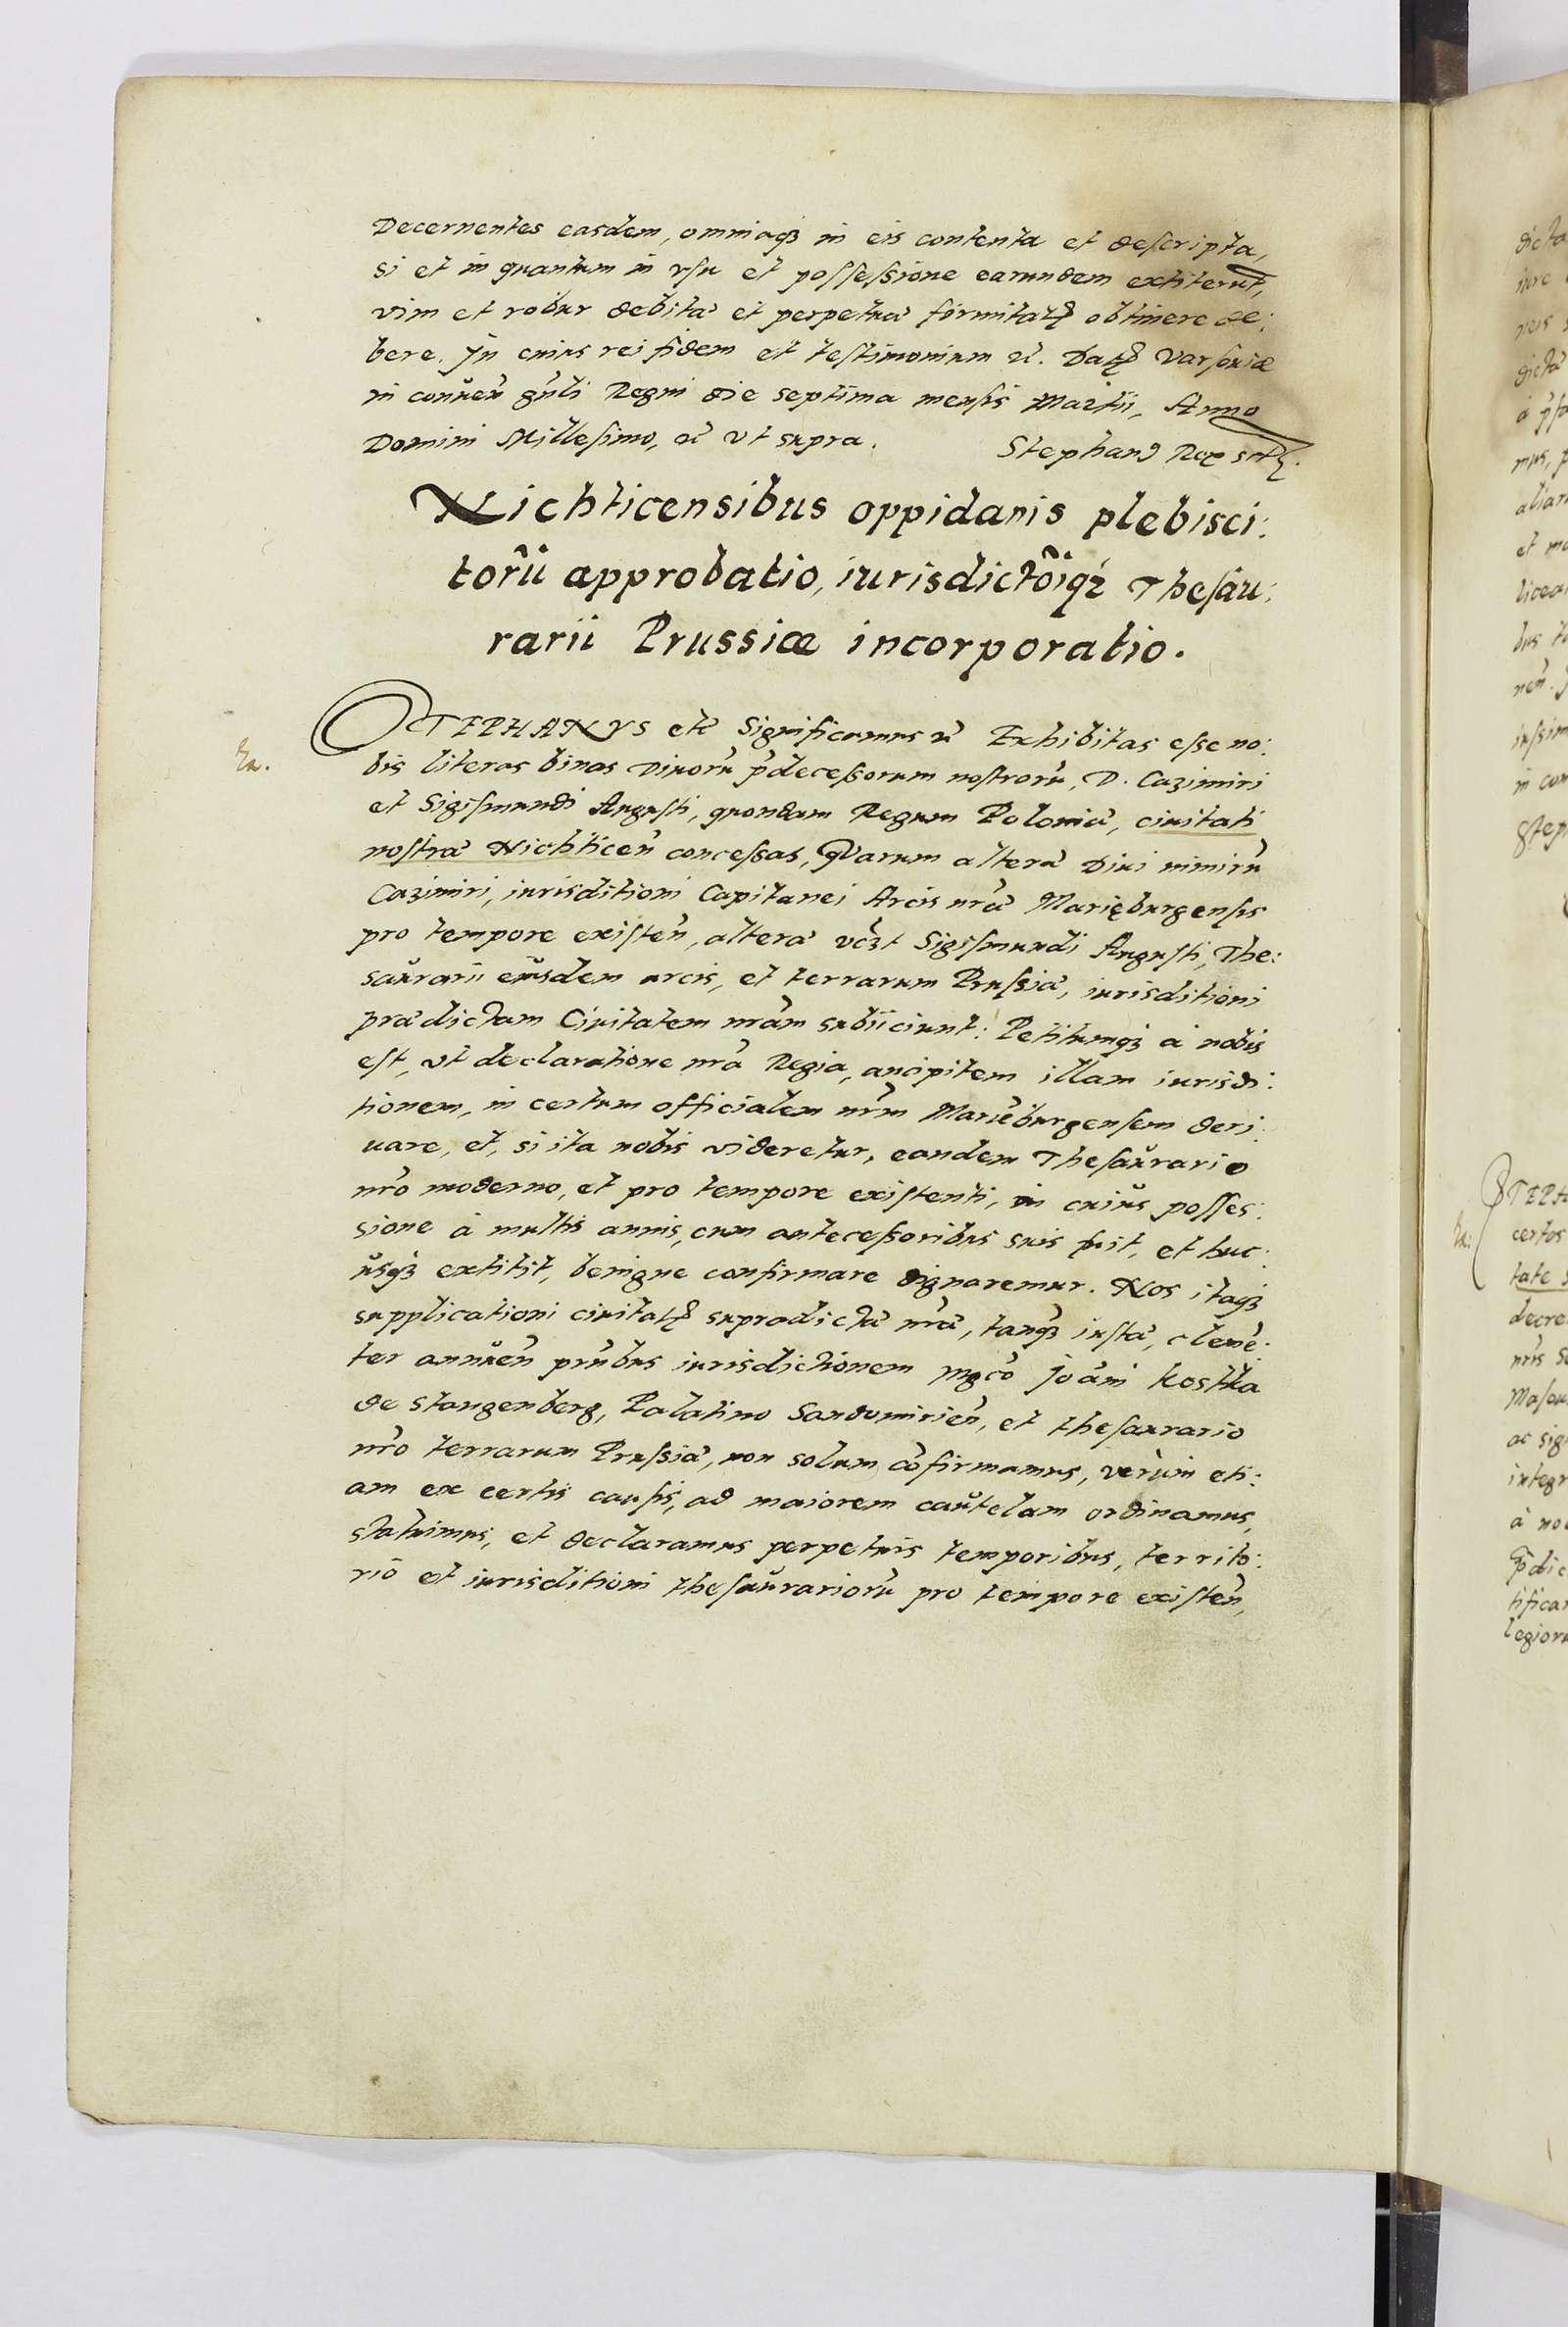 Decernentes easdem, omniaqꝫ in eis contenta et descripta,
si et in quantum in vsu et possessione earundem extiterũt,
vim et robur debitæ et perpetuæ firmitatꝭ obtinere de:
bere. In cuius rei fidem et testimonium etc̃. Datꝭ Varsouiæ
in conuen̄ gn̄li Regni die septima mensis Martii, Anno
Domini Millesimo, etc̃ vt supra. Stephanꝰ Rex sstꝭ.
Nichticensibus oppidanis plebisci:
torũ approbatio, iurisdictõiqꝫ Thesau:
rarii Prussiæ incorporatio.
STEPHANVS etc̃ Significamus etc̃ Exhibitas esse no:
Ra.
bis literas binas Diuorũ p̃decessorum nostrorũ, D. Cazimiri
et Sigismundi Augusti, quondam Regum Poloniæ, ciuitati
nostræ Nichticen̄ concessas, Quarum alteræ Diui nimirũ
Cazimiri, iurisditioni Capitanei Arcis nr̃æ Marięburgensis
pro tempore existen̄, alteræ vc̃zt Sigismundi Augusti, The:
saurarii eiusdem arcis, et terrarum Prussiæ, iurisditioni
prædictam Ciuitatem nr̃am subiiciunt: Petitumqꝫ à nobis
est, vt declaratione nr̃a Regia, ancipitem illam iurisdi:
tionem, in certum officialem nr̃m Marieburgensem deri:
uare, et, si ita nobis videretur, eandem Thesaurario
nr̃o moderno, et pro tempore existenti, in cuius posses:
sione à multis annis, cum antecessoribus suis fuit, et huc:
usqꝫ extitit, benigne confirmare dignaremur. Nos itaqꝫ
supplicationi ciuitatꝭ supradictæ nr̃æ, tanqꝫ iustæ, clemẽ:
ter annuen̄ pn̄tibus iurisdictionem Mgco̅ Joãni Kostka
de Stangenberg, Palatino Sandomirien̄, et thesaurario
nr̃o terrarum Prussiæ, non solum cõfirmamus, verùm eti:
am ex certis causis, ad maiorem cautelam ordinamus,
statuimus, et declaramus perpetuis temporibus, territo:
rio et iurisditioni thesaurariorũ pro tempore existen̄,